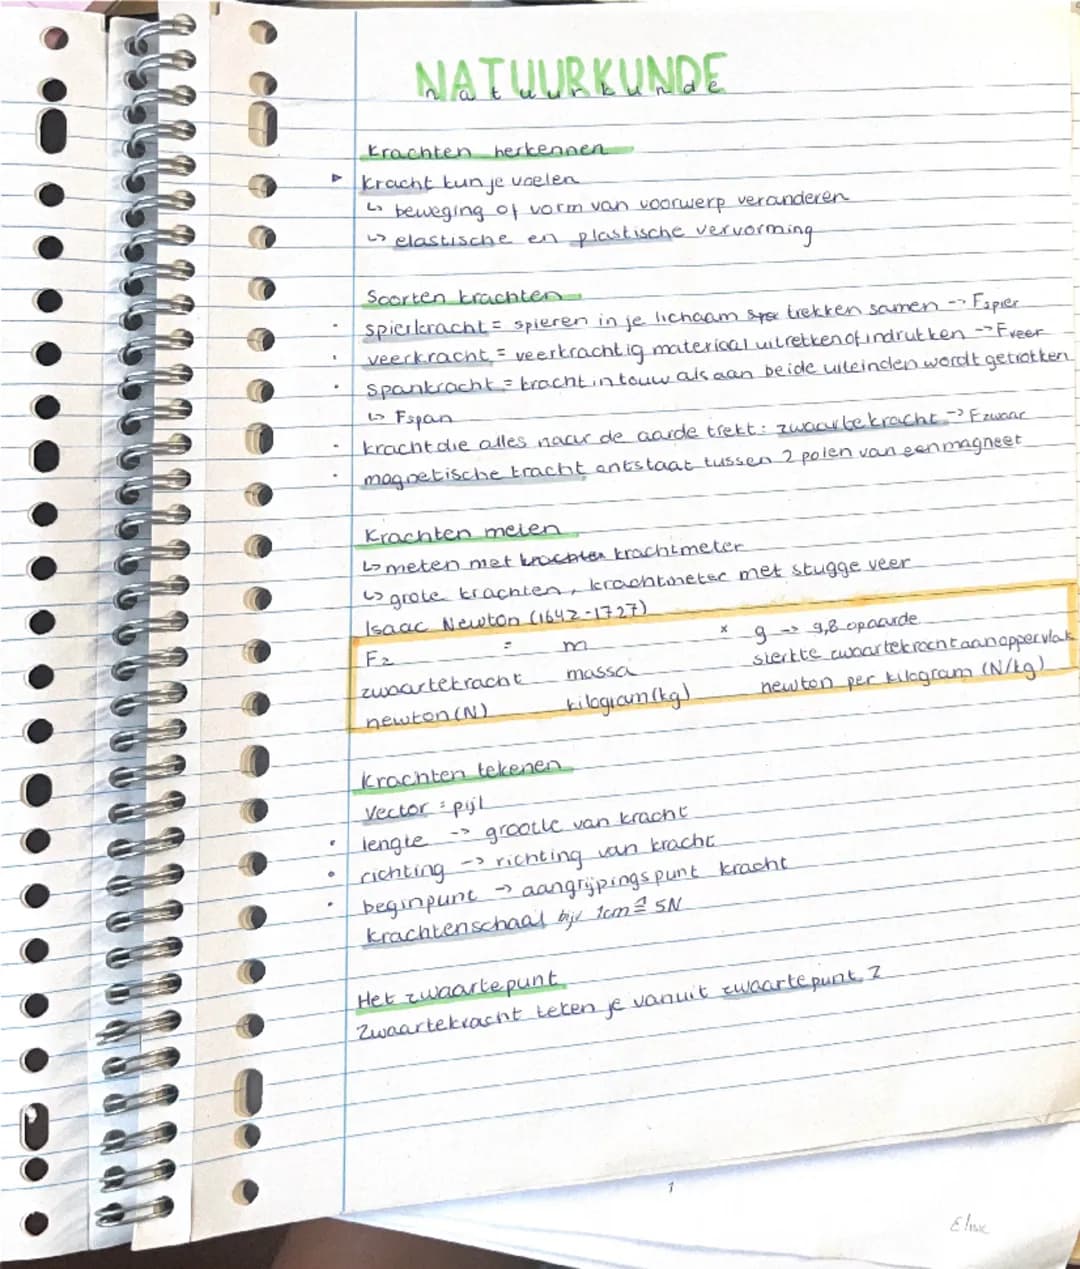 NATUURKUNDE
natuurkunde
Krachten herkennen
▸ kracht kun je voelen
↳ beweging of vorm van voorwerp veranderen
↳ elastische en plastische vervorming
Soorten krachten
• spierkracht = spieren in je lichaam trekken samen -> Fspier
• veerkracht = veerkrachtig materiaal uitrekken of indrukken -> Fveer
• spankracht = kracht in touw als aan beide uiteinden wordt getrokken
↳ Fspan
• kracht die alles naar de aarde trekt: zwaartekracht -> Fzwaar
• magnetische kracht ontstaat tussen 2 polen van een magneet
Krachten meten
↳ meten met krachten krachtmeter
↳ grote krachten, krachtmeter met stugge veer
Isaac Newton (1642-1727)
Fz = m x g -> 9,8 op aarde
zwaartekracht massa sterkte zwaartekracht aan oppervlak
newton (N) kilogram (kg) newton per kilogram (N/kg)
Krachten tekenen
Vector = pijl
• lengte -> grootte van kracht
• richting -> richting van kracht
• beginpunt -> aangrijpingspunt kracht
krachtenschaal bijv 1cm ≙ 5N
Het zwaartepunt
Zwaartekracht teken je vanuit zwaartepunt Z
1